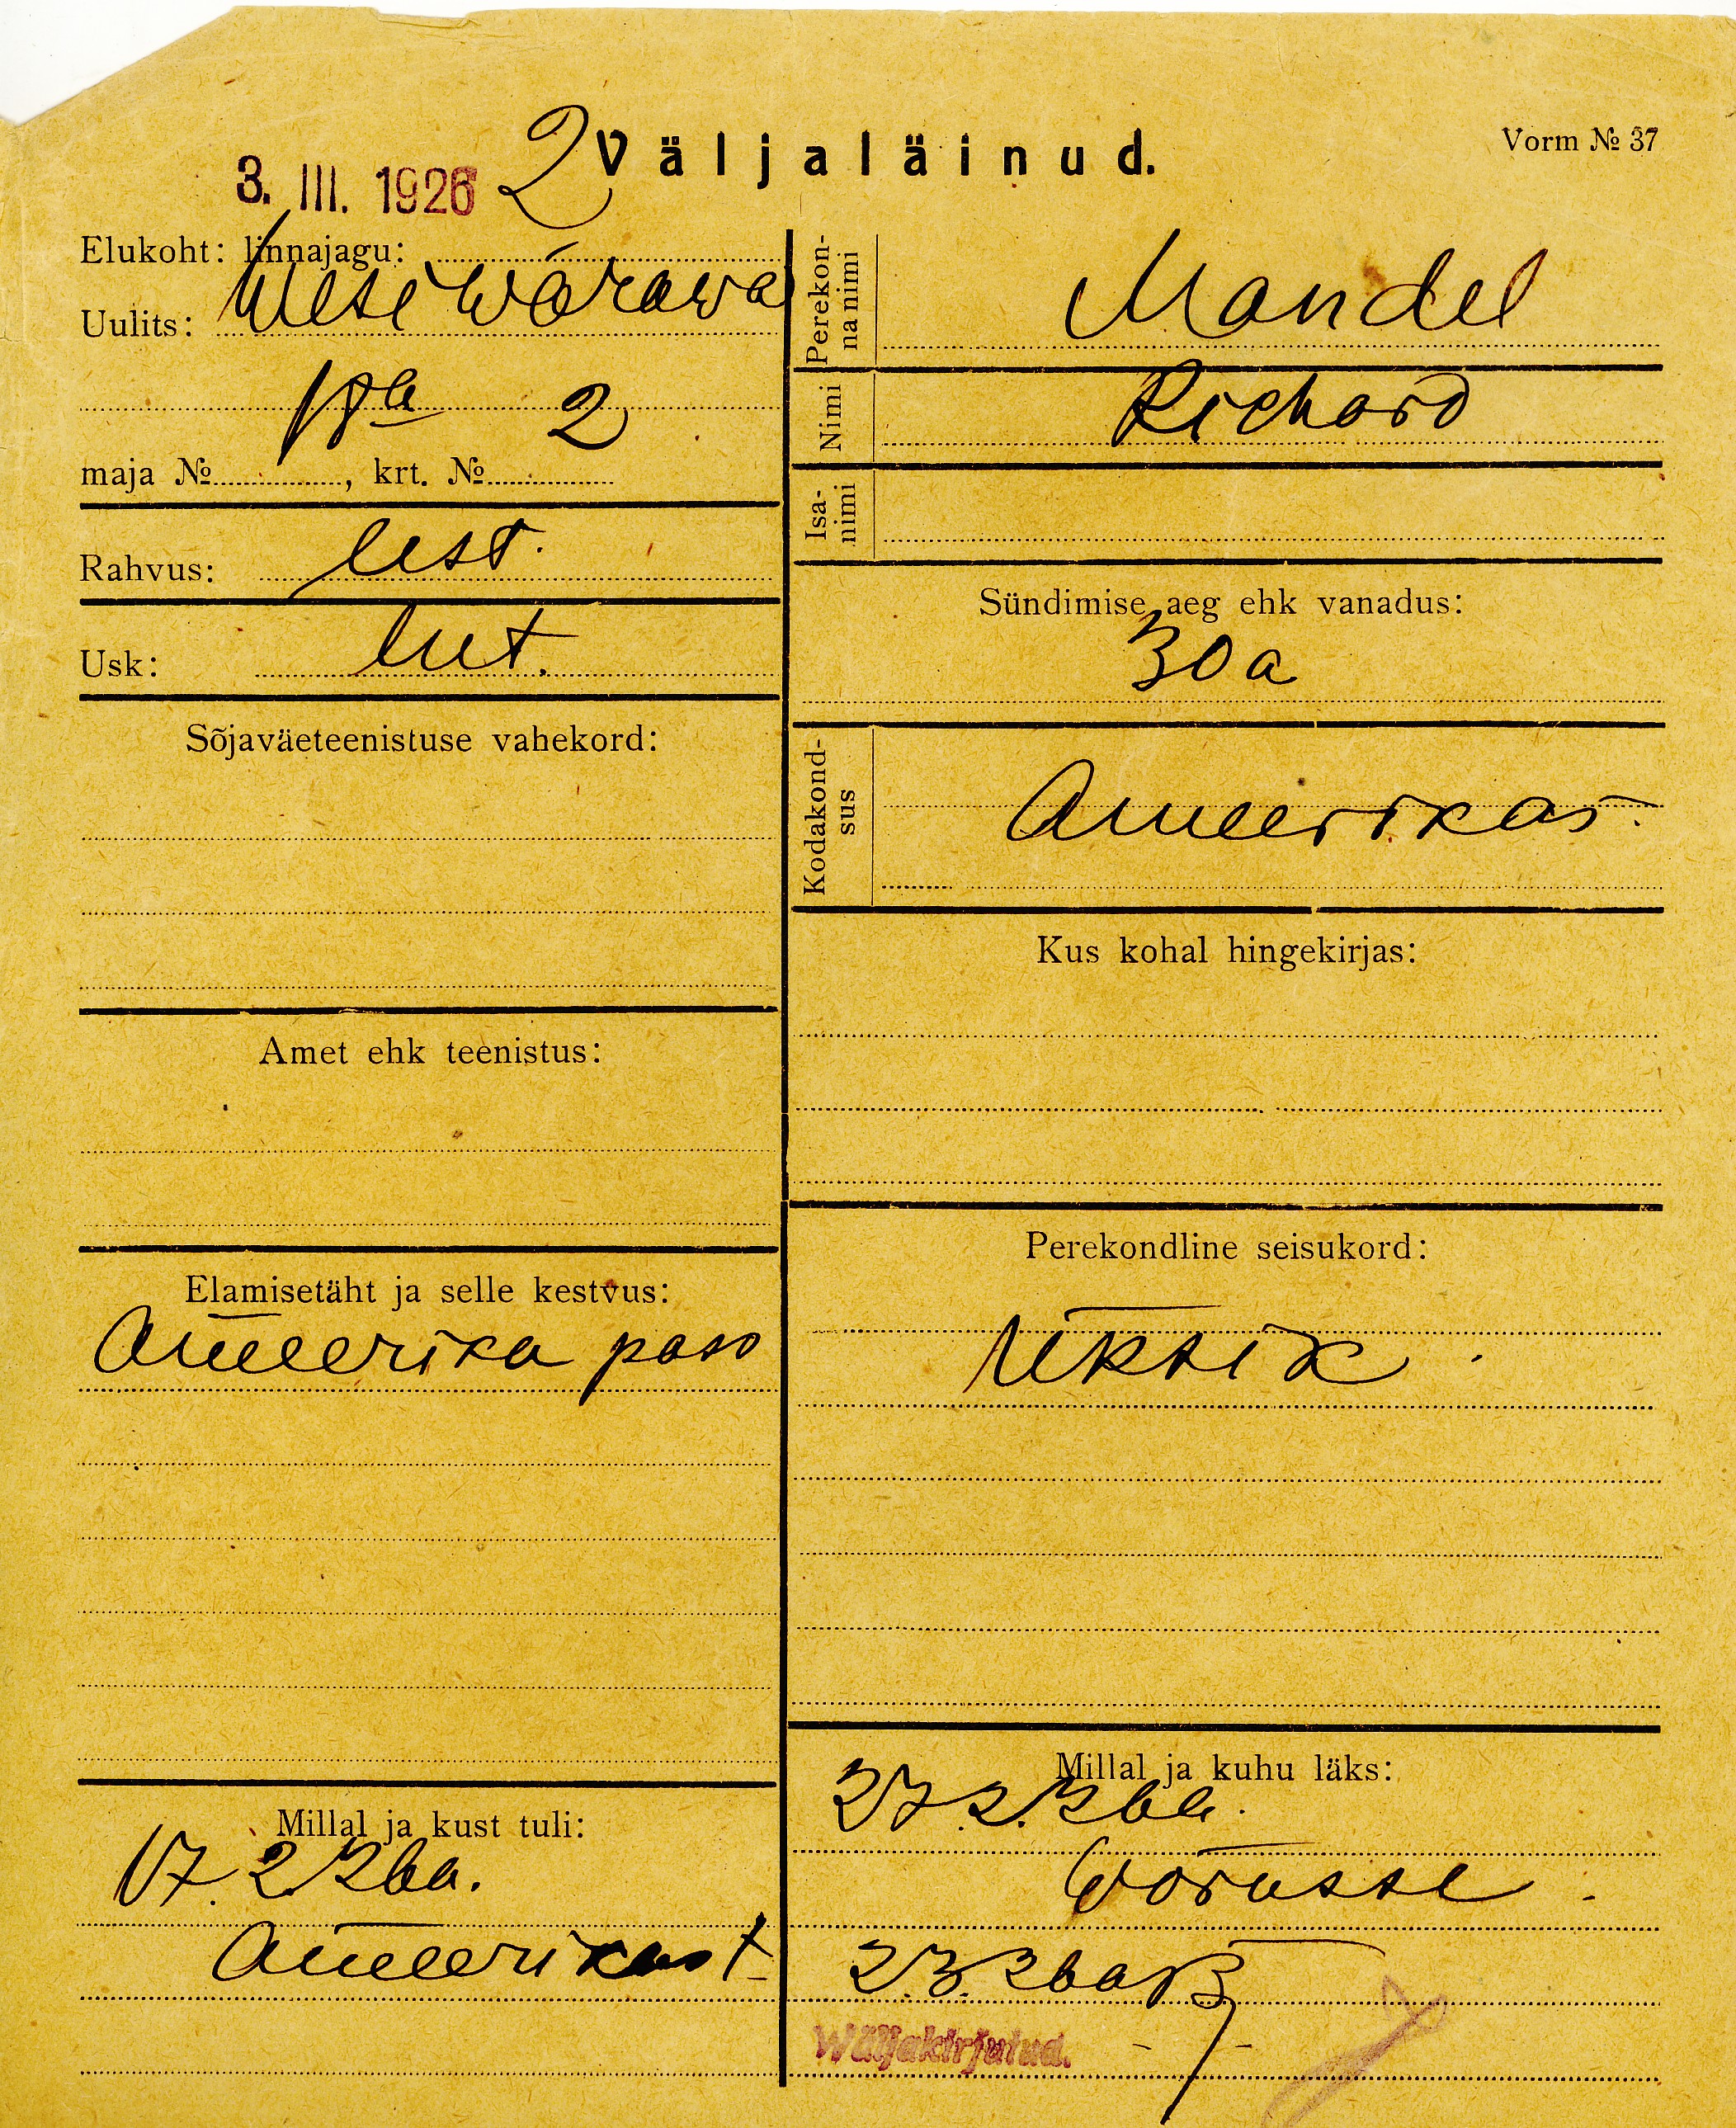 Vorm № 37
3. III. 1926
2
Väljaläinud.
Elukoht: linnajagu:
Uulits: Wesiwärawa
18a 2
maja №, krt. №
Rahvus: eest.
Usk: lut.
Sõjaväeteenistuse vahekord:
Amet ehk teenistus:
Elamisetäht ja selle kestvus:
Ameerika pass
Millal ja kust tuli:
17. 2. 26a.
Ameerikast
Perekonna nimi
Mandel
Nimi
Richard
Isanimi
Sündimise aeg ehk vanadus:
30 a
Kodakondsus
Ameerikas.
Kus kohal hingekirjas:
Perekondline seisukord:
Üksik.
Millal ja kuhu läks:
27. 2. 26a.
Võrusse.
2. 3. 26a
Wäljakirjutud.